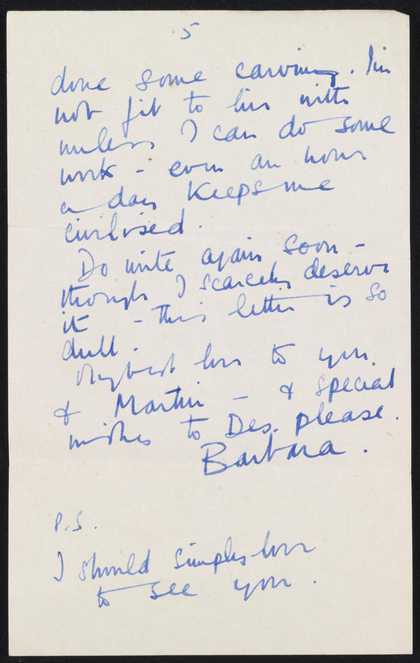 5
done some carving. I'm
not fit to live with
unless I can do some
work - even an hour
a day keeps me
civilised.
Do write again soon -
though I scarcely deserve
it - this letter is so
dull.
My best love to you
& Martin - & special
wishes to Des. please.
Barbara.
P.S.
I should simply love
to see you.